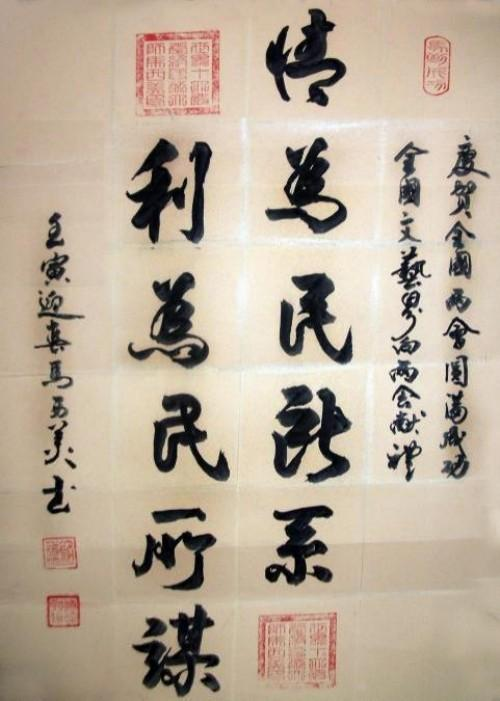 慶賀全國兩會圓滿成功
全國文藝界向兩會獻禮
情為民所系
利為民所謀
壬寅迎春馬西美书